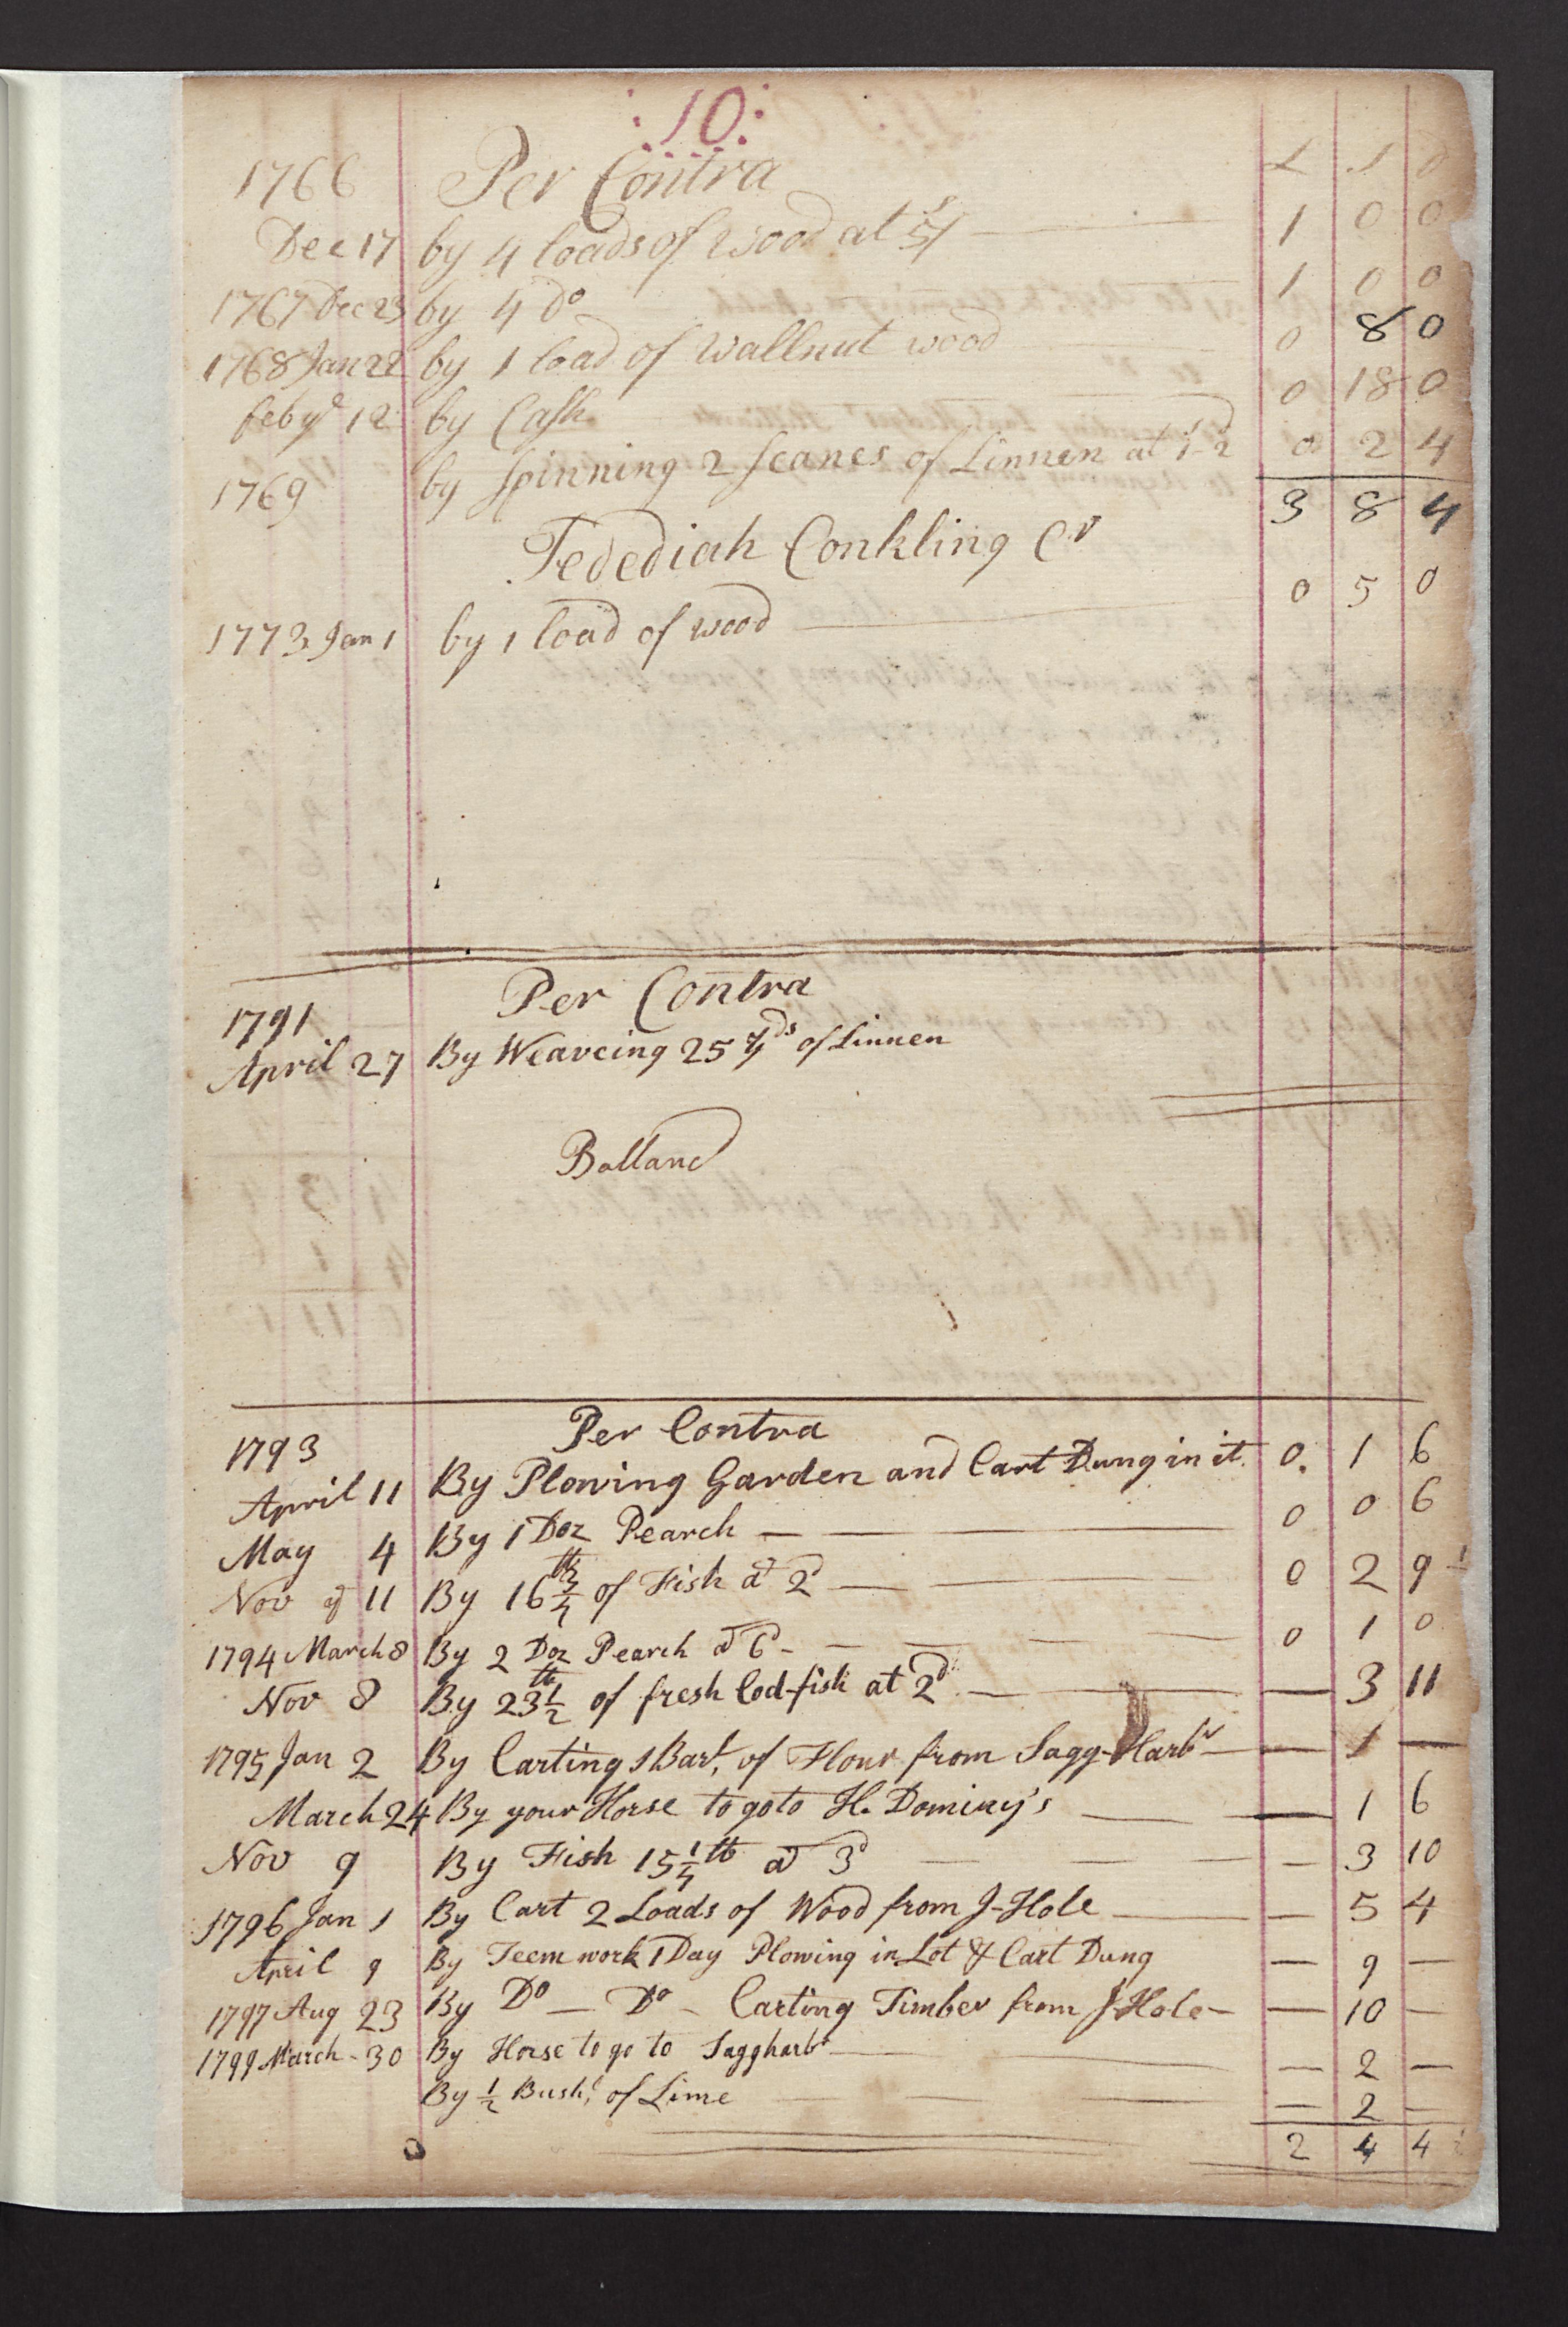 :10:
1766 Per Contra L S D
Dec 17 by 4 loads of wood at 5/ 1 0 0
1767 Dec 23 by 4 Do 1 0 0
1768 Jan 22 by 1 load of Wallnut wood 0 8 0
feb ye 12 by Cash 0 18 0
1769 by Spinning 2 Scanes of Linnen at 1-2 0 2 4
3 8 4
Jedediah Conkling Cr
1773 Jan 1 by 1 load of wood 0 5 0
1791 Per Contra
April 27 By Weaveing 25 Yds of Linnen
Ballanc
1793 Per Contra
April 11 By Plowing Garden and Cart Dung in it 0. 1 6
May 4 By 1 Doz Pearch — 0 0 6
Nov ye 11 By 16 3/4 lb of Fish at 2d — 0 2 9 1/2
1794 March 8 By 2 Doz Pearch at 6 - 0 1 0
Nov 8 By 23 1/2 lb of fresh Cod-fish at 2d — 3 11
1795 Jan 2 By Carting 1 Barl. of Flour from Sagg-Harbr — 1 —
March 24 By your Horse to go to H. Dominy's — 1 6
Nov 9 By Fish 15 1/4 lb at 3d — 3 10
1796 Jan 1 By Cart 2 Loads of Wood from J-Hole — 5 4
April 9 By Teem work 1 Day Plowing in Lot & Cart Dung — 9 —
1797 Aug 23 By Do — Do - Carting Timber from J-Hole — 10 —
1799 March - 30 By Horse to go to Saggharbr — 2 —
By 1/2 Bushl. of Lime — 2 —
2 4 4